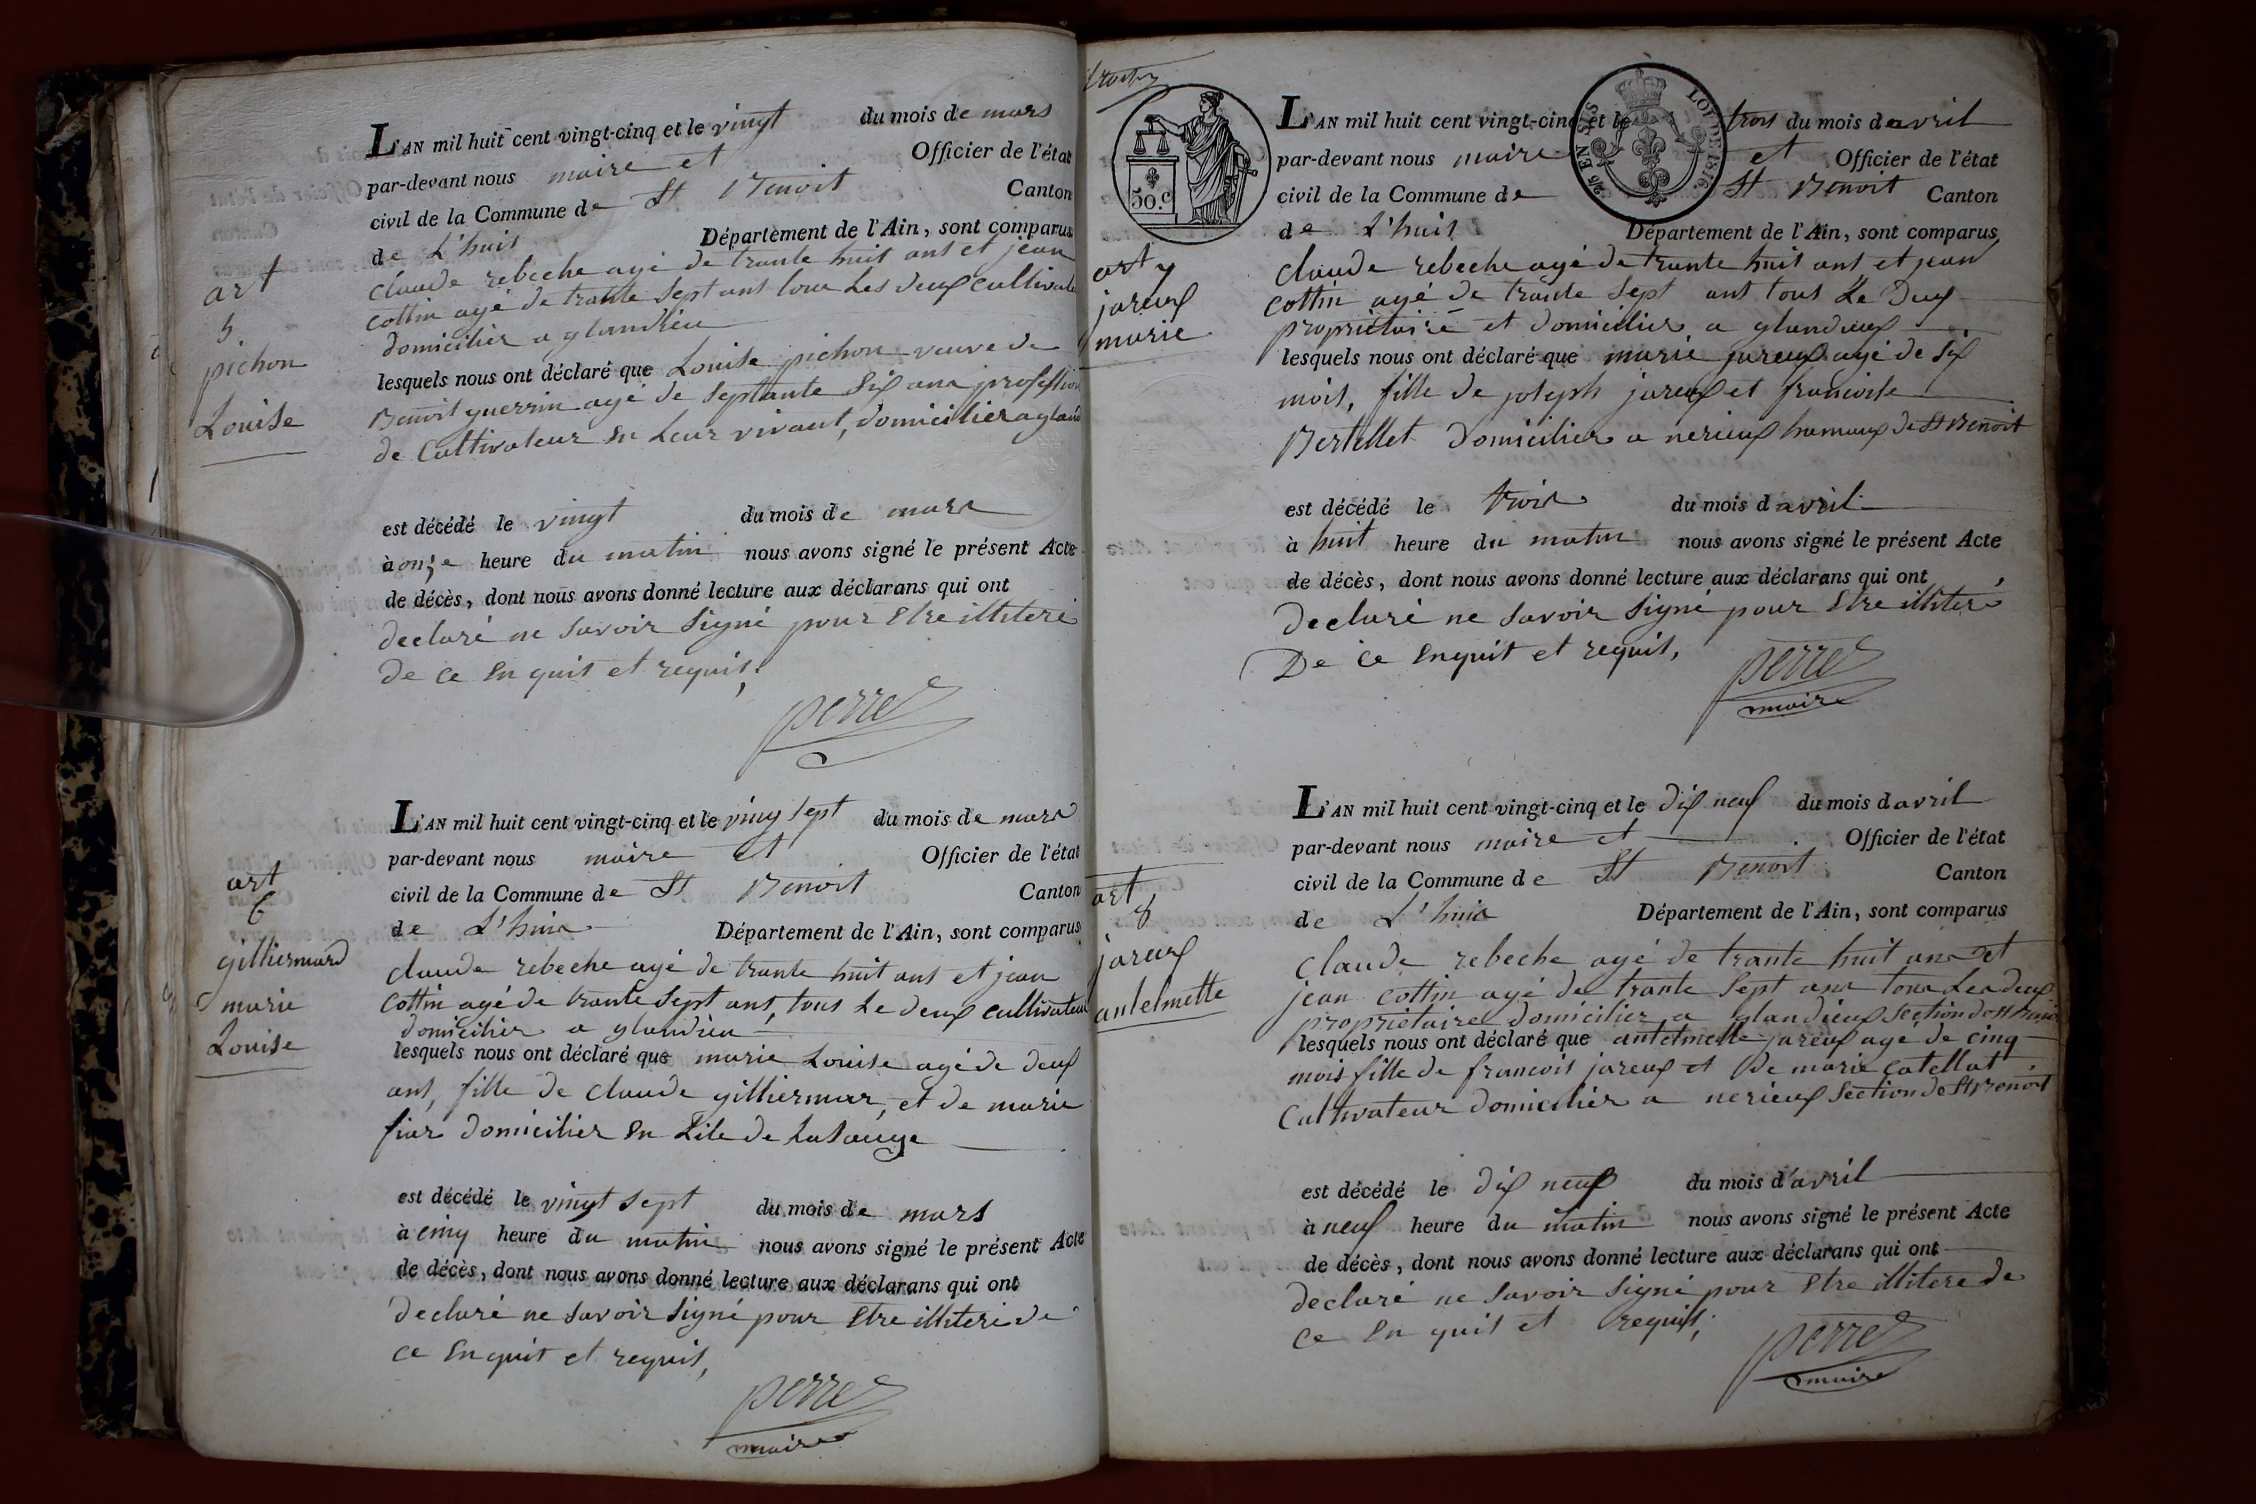 art
5
pichon
Louise
L'AN mil huit cent vingt-cinq et le vingt du mois de mars
par-devant nous maire et Officier de l'état
civil de la Commune de St Benoit Canton
de L'huis Département de l'Ain, sont comparus
claude rebeche agé de trante huit ans et jean
cottin agé de trante sept ans tous Les deux cultivate
domicilier a glandieu
lesquels nous ont déclaré que Louise pichon veuve de
Benoit guerrin agé de septante six ans profession
de Cultivateur en Leur vivant, domicilier a gland
est décédé le vingt du mois de mars
à onze heure du matin nous avons signé le présent Acte
de décès, dont nous avons donné lecture aux déclarans qui ont
declaré ne savoir signé pour Etre illiteré
de ce enquit et requis,
perret
art
6
gilliermard
marie
Louise
L'AN mil huit cent vingt-cinq et le vingt sept du mois de mars
par-devant nous maire et Officier de l'état
civil de la Commune de St Benoit Canton
de L'huis Département de l'Ain, sont comparus
claude rebeche agé de trante huit ans et jean
cottin agé de trante sept ans, tous Le deux cultivateur
domicilier a glandieu
lesquels nous ont déclaré que marie Louise agé de deux
ans, fille de claude gilliermar, et de marie
fiar domicilier en Lile de La sauge
est décédé le vingt sept du mois de mars
à cinq heure du matin nous avons signé le présent Acte
de décès, dont nous avons donné lecture aux déclarans qui ont
declaré ne savoir signé pour Etre illiteré de
ce enquit et requis,
perret
maire
30.c
2/6 EN SUS
LOI DE 1816.
art 7
jareux
marie
L'AN mil huit cent vingt-cinq et le trois du mois d avril
par-devant nous maire et Officier de l'état
civil de la Commune de St Benoit Canton
de L'huis Département de l'Ain, sont comparus
claude rebeche agé de trante huit ans et jean
cottin agé de trante sept ans tous Le deux
propriétaire et domicilier a glandieux
lesquels nous ont déclaré que marie jareux agé de six
mois, fille de joseph jareux et francoise
Bertellet domicilier a nerieux hamaux de St Benoit
est décédé le trois du mois d avril
à huit heure du matin nous avons signé le présent Acte
de décès, dont nous avons donné lecture aux déclarans qui ont
declaré ne savoir signé pour Etre illiteré
De ce enquit et requis,
perret
maire
art
8
jareux
antelmette
L'AN mil huit cent vingt-cinq et le dix neuf du mois d avril
par-devant nous maire et Officier de l'état
civil de la Commune de St Benoit Canton
de L'huis Département de l'Ain, sont comparus
claude rebeche agé de trante huit ans et
jean cottin agé de trante sept ans tous Les deux
propriétaire domicilier a glandieux section de St Benoit
lesquels nous ont déclaré que antelmette jareux agé de cinq
mois fille de francois jareux et de marie catellat
Cultivateur domicilier a nerieux section de St Benoit
est décédé le dix neuf du mois d'avril
à neuf heure du matin nous avons signé le présent Acte
de décès, dont nous avons donné lecture aux déclarans qui ont
declaré ne savoir signé pour Etre illiteré de
ce en quit et requis,
perret
maire